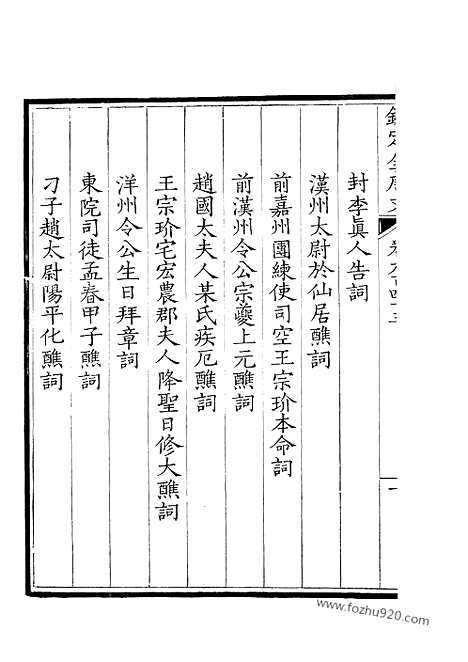 欽定全唐文 卷九百四十三 一
封李眞人告詞
漢州太尉於仙居醮詞
前嘉州團練使司空王宗玠本命詞
前漢州令公宗夔上元醮詞
趙國太夫人某氏疾厄醮詞
王宗玠宅宏農郡夫人降聖日修大醮詞
洋州令公生日拜章詞
東院司徒孟春甲子醮詞
刁子趙太尉陽平化醮詞
www.fozhu920.com